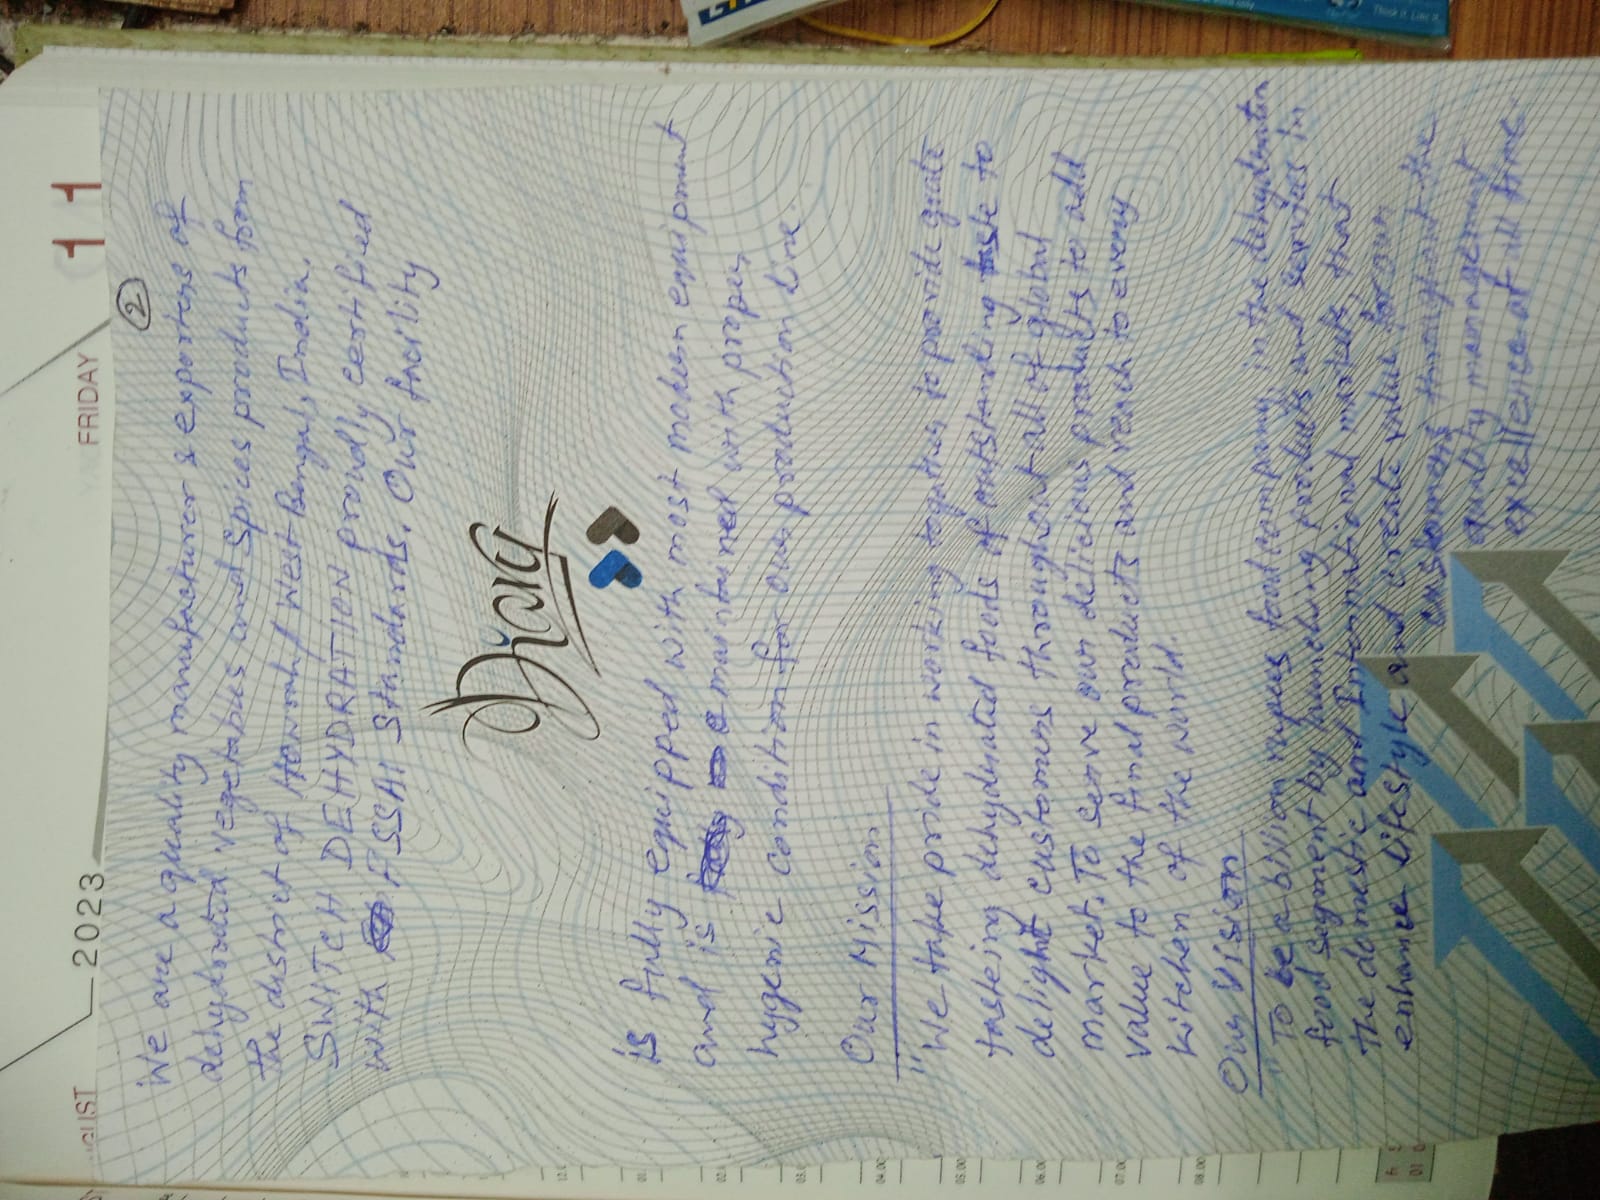 AUGUST 2023 FRIDAY 11
2
We are a quality manufacturer & exporters of
dehydrated vegetables and Spices products from
the district of Howrah / West Bengal, India.
SWITCH DEHYDRATION proudly certified
with FSSAI Standards. Our facility
Diary
is fully equipped with most modern equipment
and is maintained with proper
hygenic condition for our production line.
Our Mission
"We take pride in working together to provide grate
tasteing dehydrated foods of outstanding taste to
delight customers throughout all of global
market. To serve our delicious products to add
value to the final products and reach to every
kitchen of the world.
Our Vision
"To be a billion rupees food company, in the dehydration
food segment by launching products and services in
the domestic and International markets, that
enhance lifestyle and create value for our
customers throughout the
quality management
excellence at all time.
01
02.0
03.0
04.00
05.00
06.00
07.00
08.00